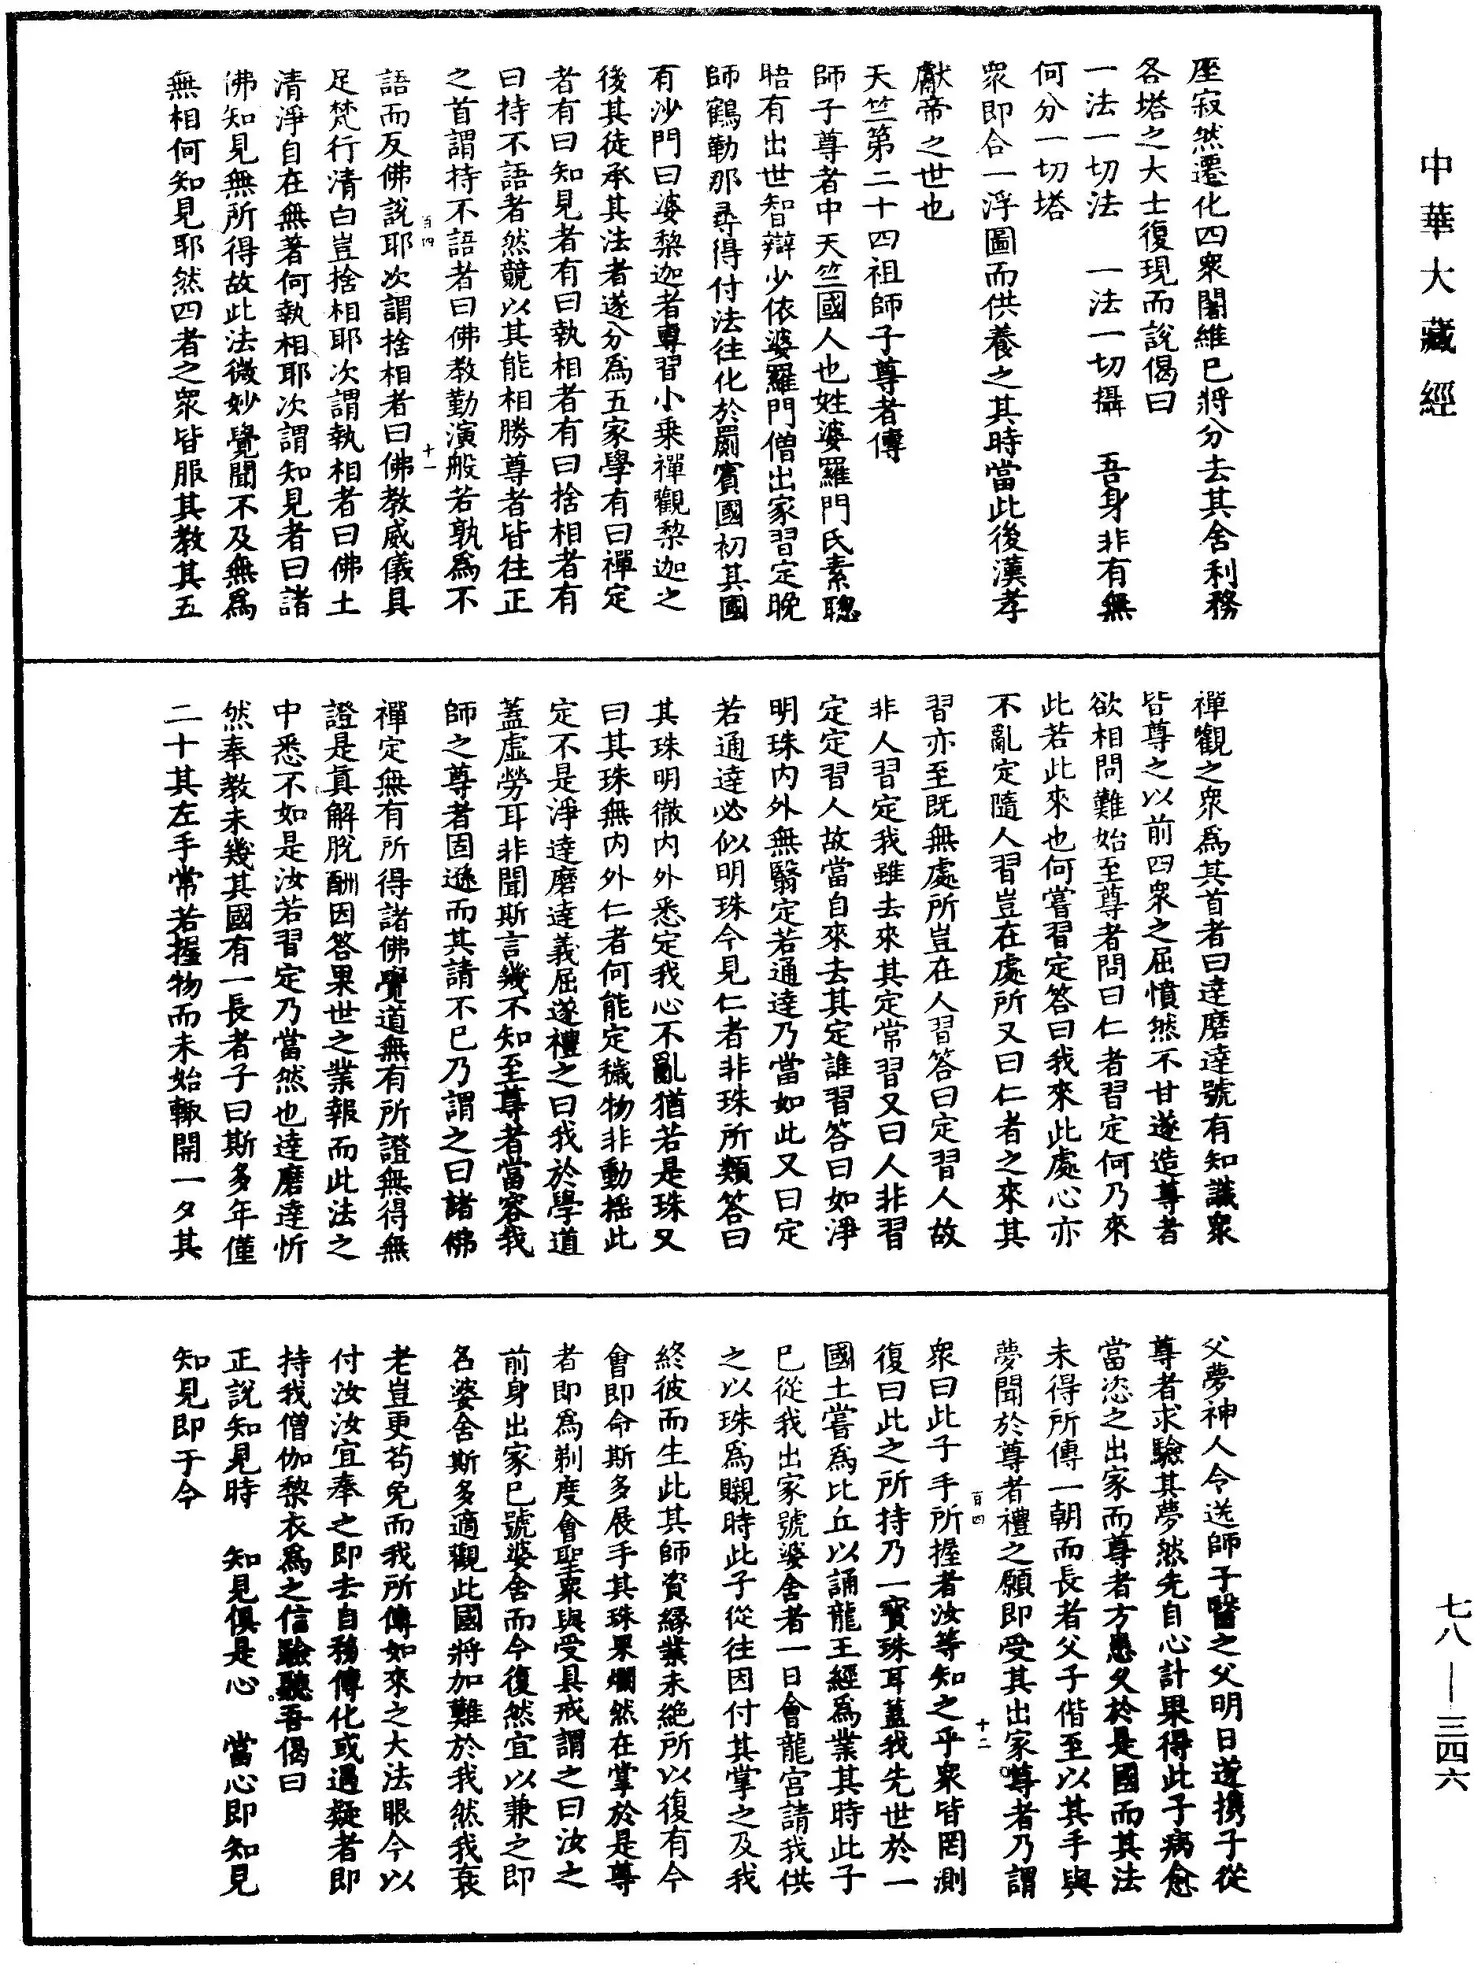 中華大藏經
座寂然遷化四衆闍維已將分去其舍利務
各塔之大士復現而說偈曰
一法一切法　一法一切攝　吾身非有無
何分一切塔
衆即合一浮圖而供養之其時當此後漢孝
獻帝之世也
天竺第二十四祖師子尊者傳
師子尊者中天竺國人也姓婆羅門氏素聰
晤有出世智辯少依婆羅門僧出家習定晚
師鶴勒那尋得付法往化於罽賓國初其國
有沙門曰婆黎迦者專習小乘禪觀黎迦之
後其徒承其法者遂分為五家學有曰禪定
者有曰知見者有曰執相者有曰捨相者有
曰持不語者然競以其能相勝尊者皆往正
之首謂持不語者曰佛教勤演般若孰為不
語而反佛說耶次謂捨相者曰佛教威儀具
百四　十一
足梵行清白豈捨相耶次謂執相者曰佛土
清淨自在無著何執相耶次謂知見者曰諸
佛知見無所得故此法微妙覺聞不及無為
無相何知見耶然四者之衆皆服其教其五
禪觀之衆為其首者曰達磨達號有知識衆
皆尊之以前四衆之屈憤然不甘遂造尊者
欲相問難始至尊者問曰仁者習定何乃來
此若此來也何嘗習定答曰我來此處心亦
不亂定隨人習豈在處所又曰仁者之來其
習亦至既無處所豈在人習答曰定習人故
非人習定我雖去來其定常習又曰人非習
定定習人故當自來去其定誰習答曰如淨
明珠內外無翳定若通達乃當如此又曰定
若通達必似明珠今見仁者非珠所類答曰
其珠明徹內外悉定我心不亂猶若是珠又
曰其珠無內外仁者何能定穢物非動搖此
定不是淨達磨達義屈遂禮之曰我於學道
蓋虛勞耳非聞斯言幾不知至尊者當容我
師之尊者固遜而其請不已乃謂之曰諸佛
禪定無有所得諸佛覺道無有所證無得無
證是真解脫酬因答果世之業報而此法之
中悉不如是汝若習定乃當然也達磨達忻
然奉教未幾其國有一長者子曰斯多年僅
二十其左手常若握物而未始輙開一夕其
父夢神人令送師子醫之父明日遂携子從
尊者求驗其夢然先自心計果得此子病愈
當恣之出家而尊者方愚父於是國而其法
未得所傳一朝而長者父子偕至以其手與
夢聞於尊者禮之願即受其出家尊者乃謂
百四　十二
衆曰此子手所握者汝等知之乎衆皆罔測
復曰此之所持乃一寶珠耳蓋我先世於一
國土嘗為比丘以誦龍王經為業其時此子
已從我出家號婆舍者一日會龍宮請我供
之以珠為瞡時此子從往因付其掌之及我
終彼而生此其師資緣業未絕所以復有今
會即命斯多展手其珠果爛然在掌於是尊
者即為剃度會聖衆與受具戒謂之曰汝之
前身出家已號婆舍而今復然宜以兼之即
名婆舍斯多適觀此國將加難於我然我衰
老豈更苟免而我所傳如來之大法眼今以
付汝汝宜奉之即去自務傳化或遇疑者即
持我僧伽黎衣為之信驗聽吾偈曰
正說知見時　知見俱是心　當心即知見
知見即于今
七八—三四六